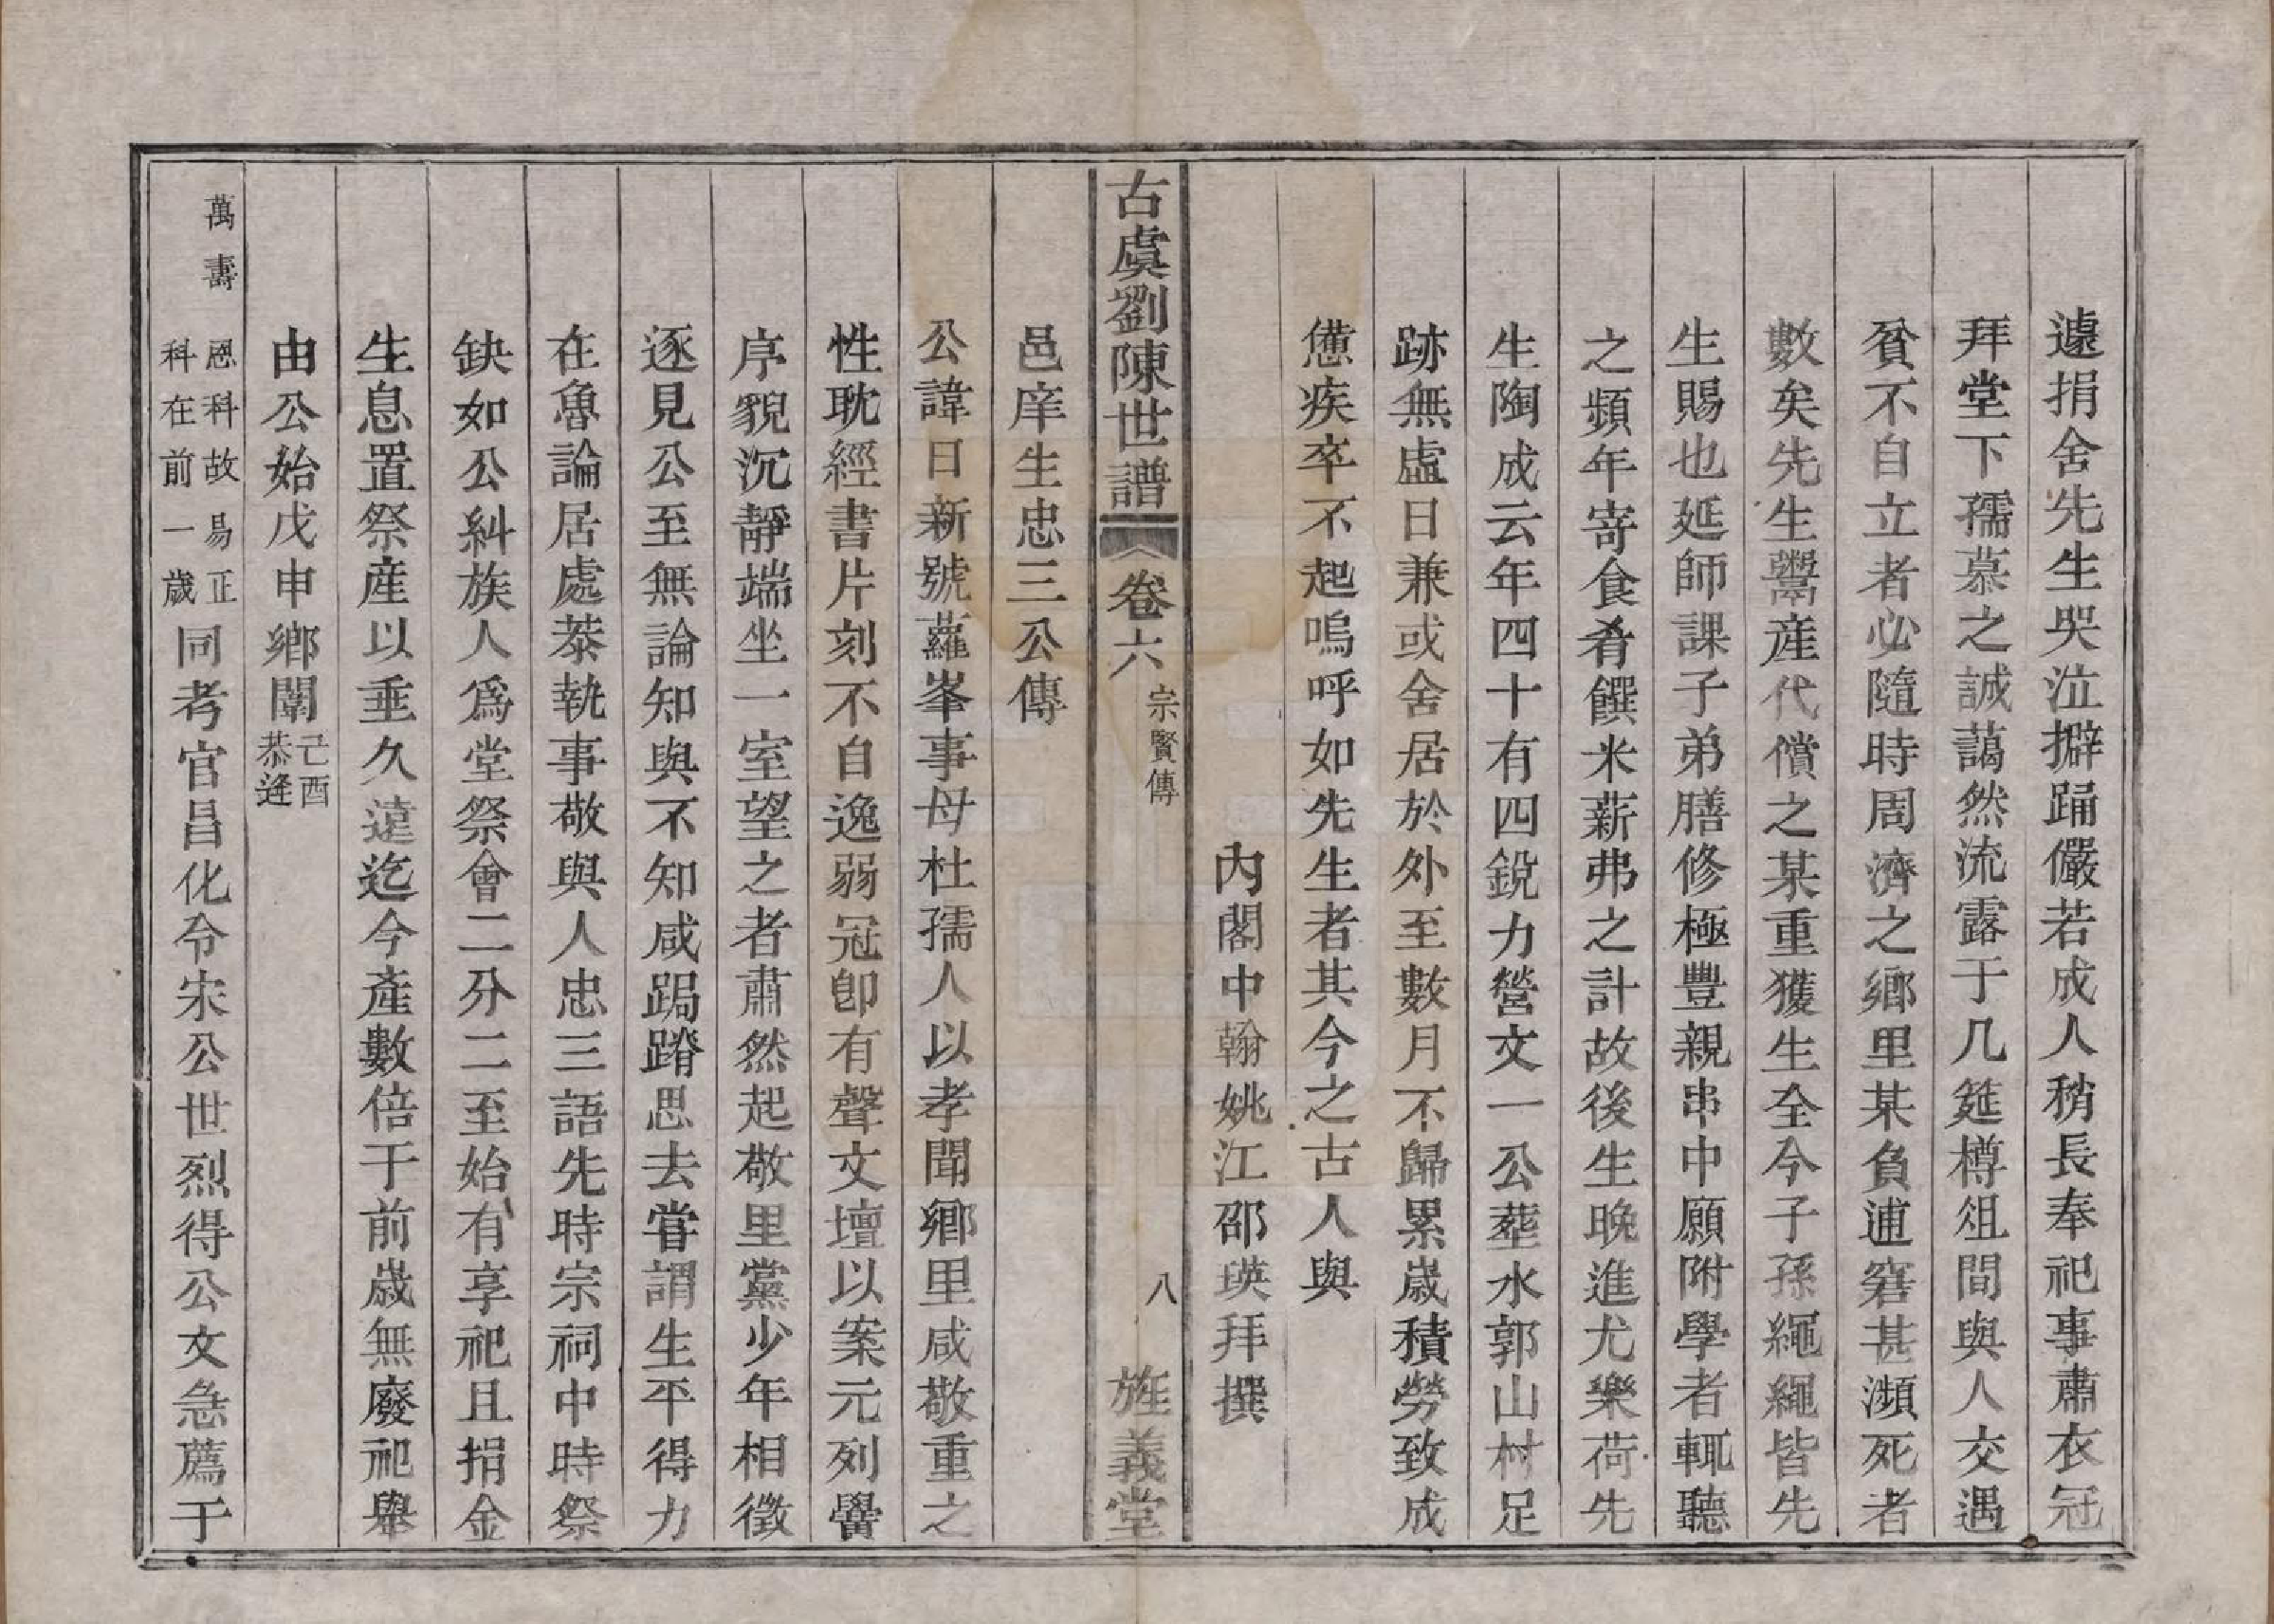 遽捐舍先生哭泣擗踊儼若成人稍長奉祀事肅衣冠
拜堂下孺慕之誠藹然流露于几筵樽俎間與人交遇
貧不自立者必隨時周濟之鄉里某負逋窘甚瀕死者
數矣先生鬻産代償之某重獲生全今子孫繩繩皆先
生賜也延師課子弟膳修極豐親串中願附學者輒聽
之頻年寄食肴饌米薪弗之計故後生晚進尤樂荷先
生陶成云年四十有四銳力營文一公葬水郭山村足
跡無虛日兼或舍居於外至數月不歸累歲積勞致成
憊疾卒不起嗚呼如先生者其今之古人與
內閣中翰姚江邵瑛拜撰
古虞劉陳世譜 卷六 宗賢傳 八 旌義堂
邑庠生忠三公傳
公諱日新號蘿峯事母杜孺人以孝聞鄉里咸敬重之
性耽經書片刻不自逸弱冠卽有聲文壇以案元列黌
序貌沉靜端坐一室望之者肅然起敬里黨少年相徵
逐見公至無論知與不知咸跼蹐思去嘗謂生平得力
在魯論居處恭執事敬與人忠三語先時宗祠中時祭
缺如公糾族人爲堂祭會二分二至始有享祀且捐金
生息置祭産以垂久遠迄今產數倍于前歲無廢祀舉
由公始戊申鄉闈己酉恭逢
萬壽恩科故易正科在前一歲同考官昌化令宋公世烈得公文急薦于